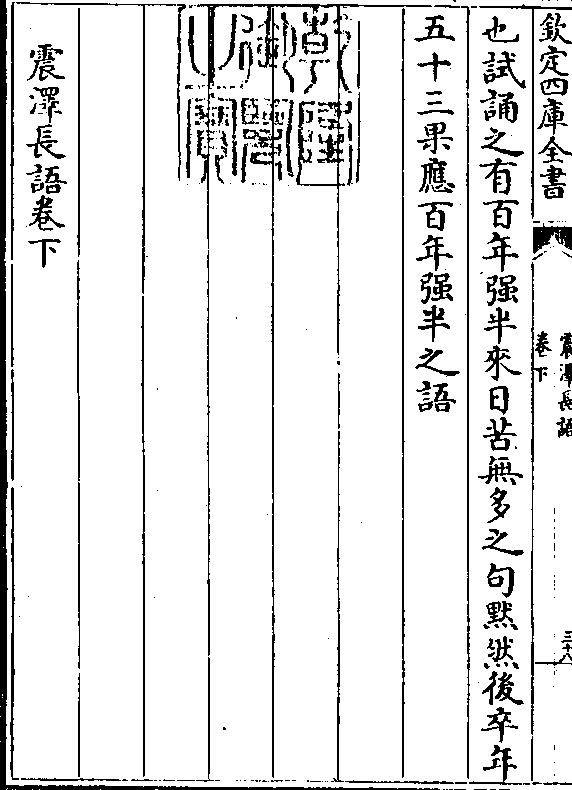 欽定四庫全書
震澤長語
卷下
三十八
也試誦之有百年强半來日苦無多之句黙然後卒年
五十三果應百年强半之語
乾隆御覽之寳
震澤長語卷下